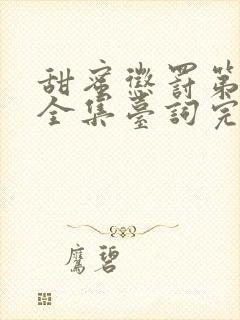 甜蜜懲罰第
全集臺詞完
鷹碧